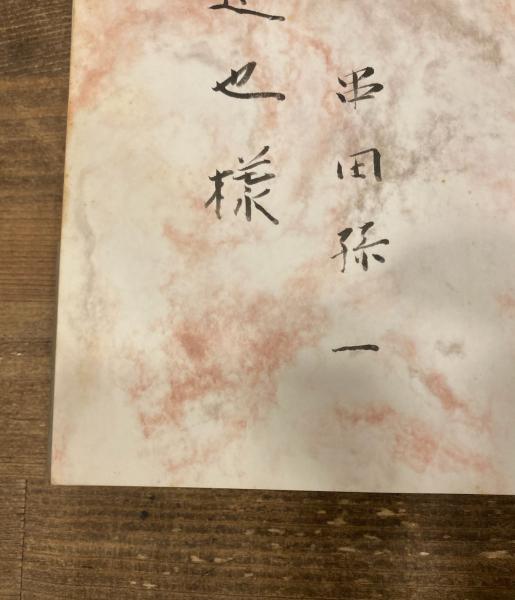 串田孫一
也様